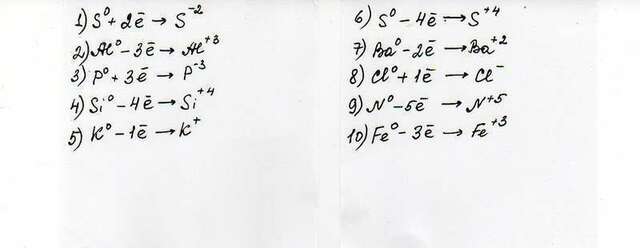 1) S⁰ + 2ē → S⁻²
2) Al⁰ – 3ē → Al⁺³
3) P⁰ + 3ē → P⁻³
4) Si⁰ – 4ē → Si⁺⁴
5) K⁰ – 1ē → K⁺
6) S⁰ – 4ē → S⁺⁴
7) Ba⁰ – 2ē → Ba⁺²
8) Cl⁰ + 1ē → Cl⁻
9) N⁰ – 5ē → N⁺⁵
10) Fe⁰ – 3ē → Fe⁺³